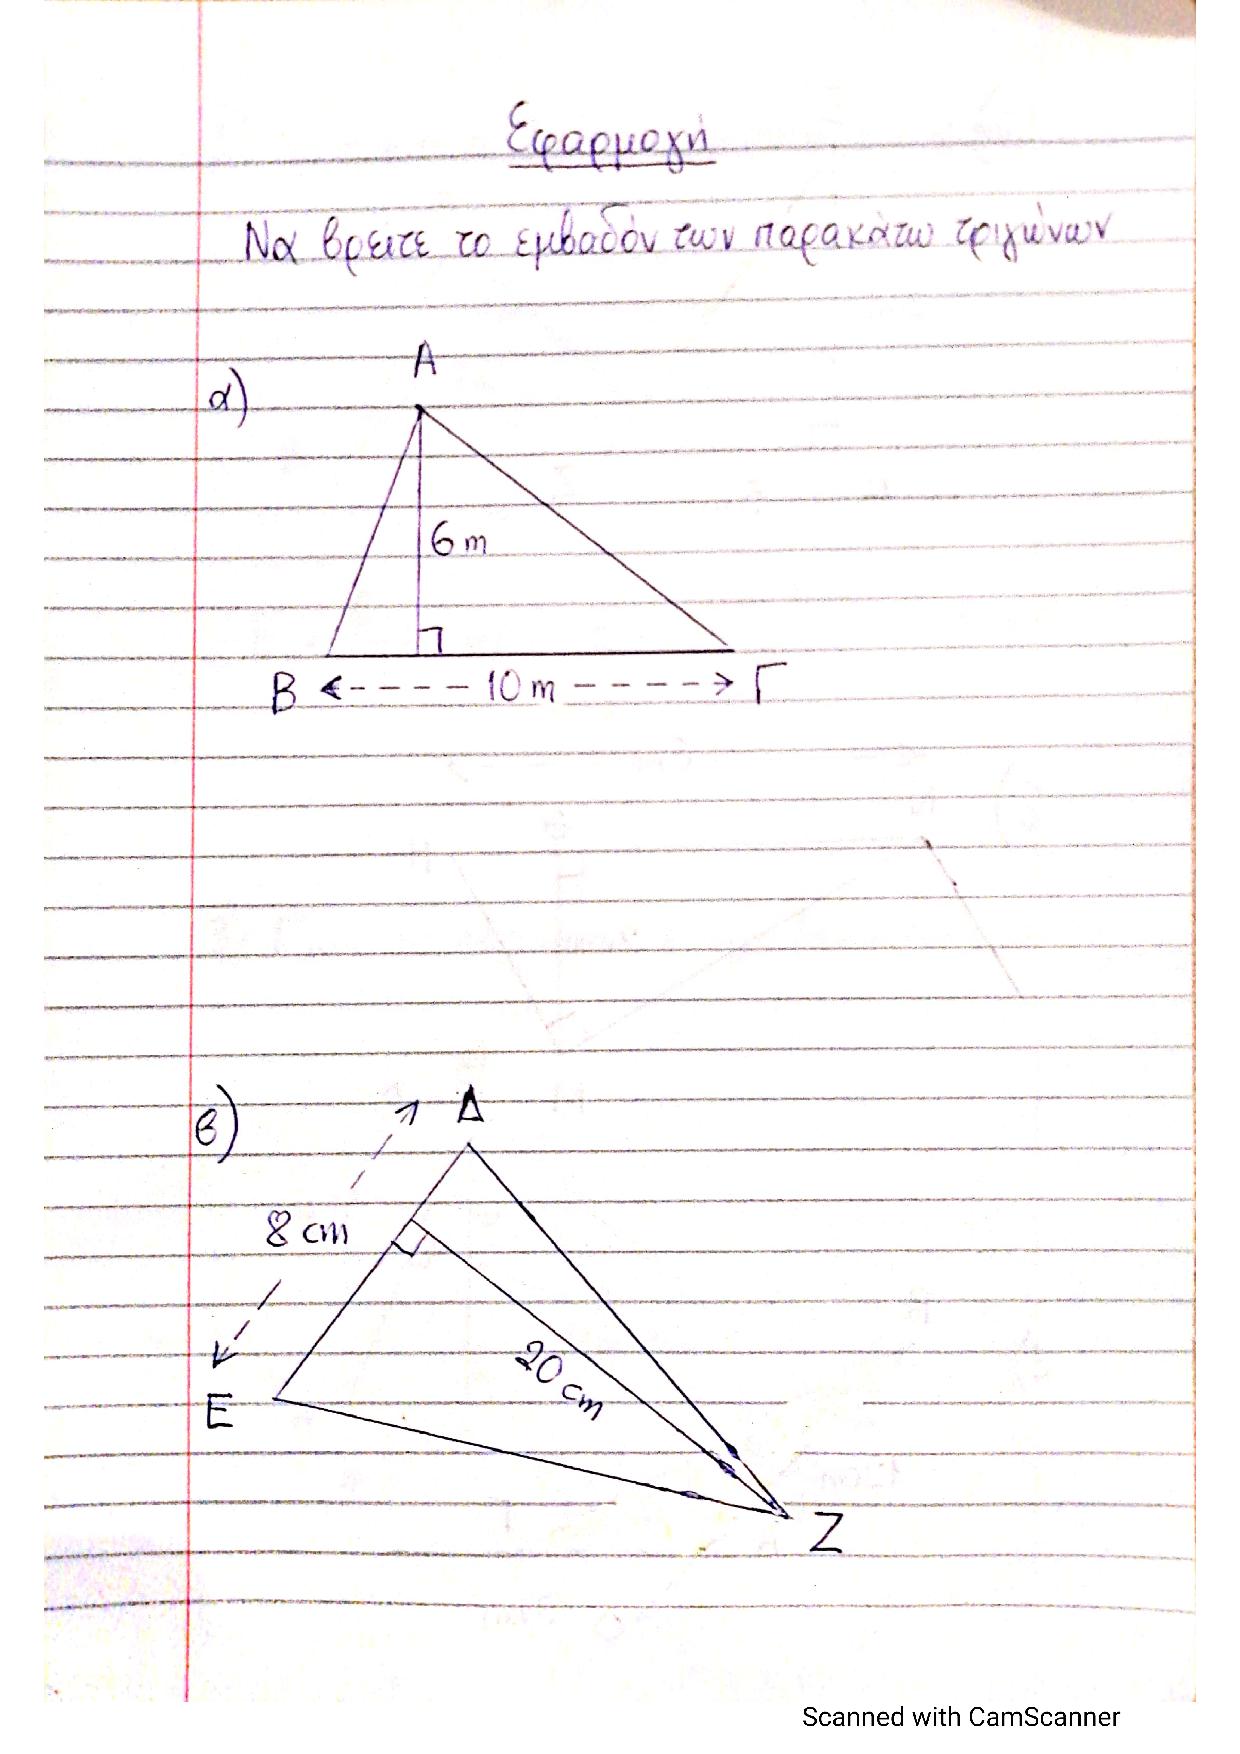 Εφαρμογή
Να βρειτε το εμβαδόν των παρακάτω τριγώνων
α)
Α
6 m
Β
10 m
Γ
β)
Δ
8 cm
20 cm
Ε
Ζ
Scanned with CamScanner